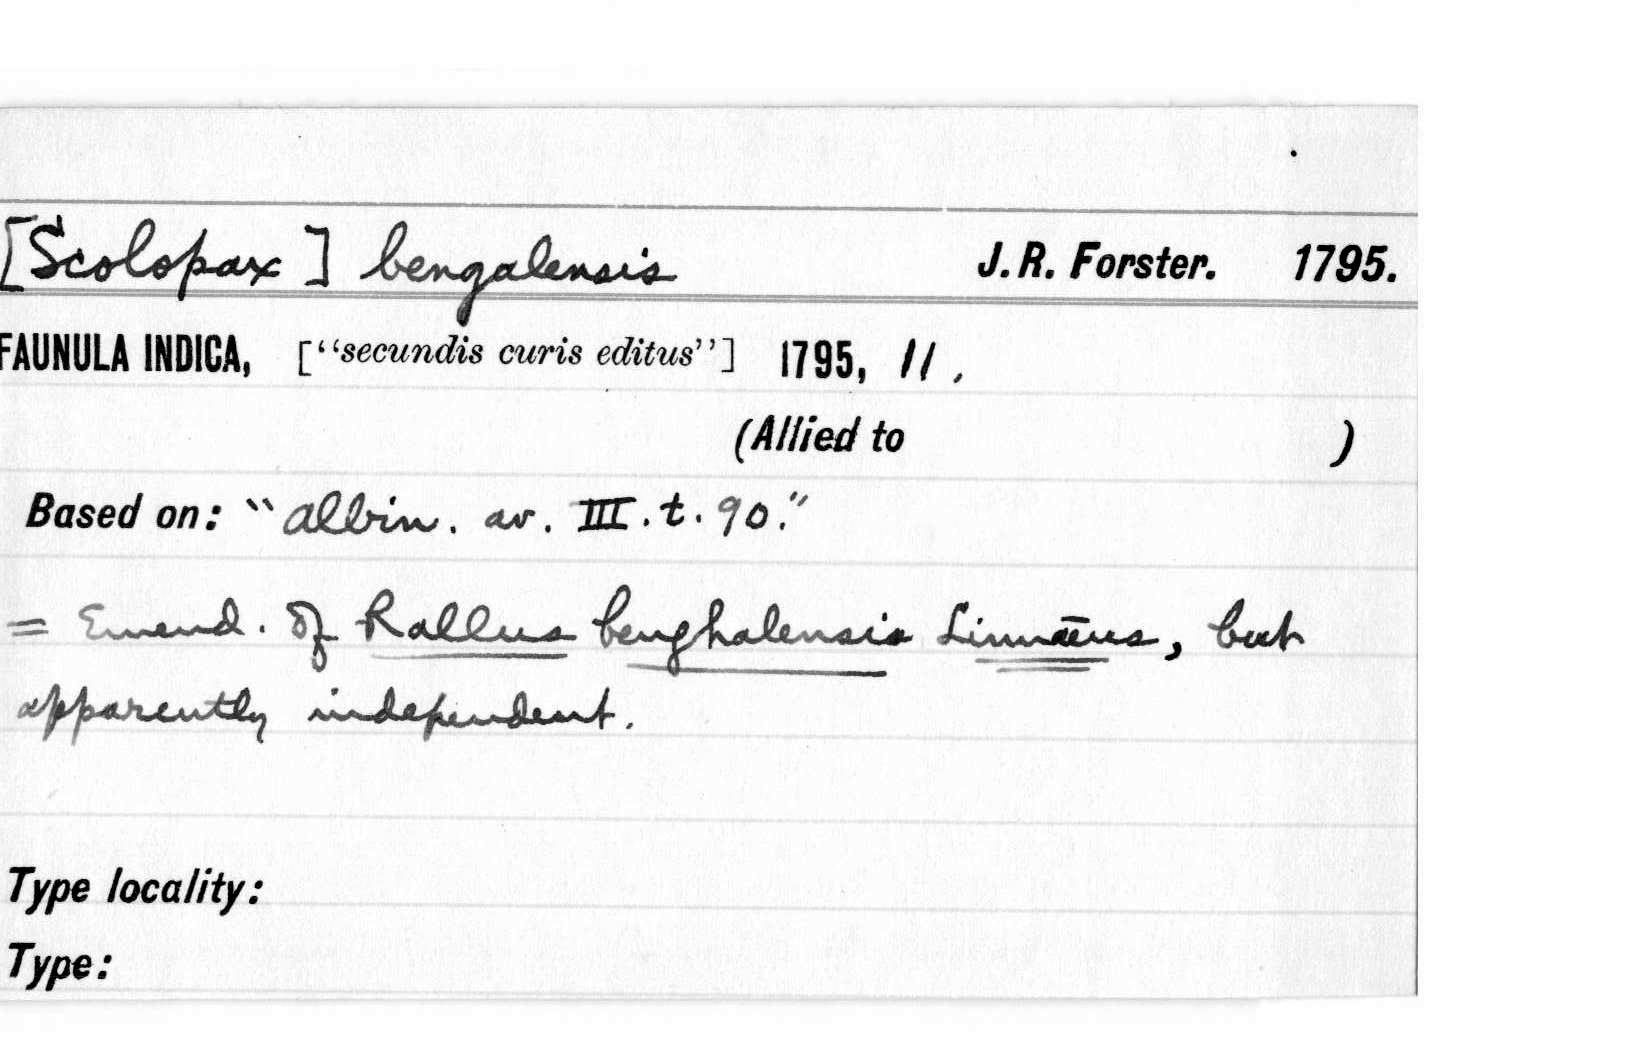 [Scolopax] bengalensis J. R. Forster. 1795.
FAUNULA INDICA, [“secundis curis editus”] 1795, 11.
(Allied to )
Based on: “Albin. av. III. t. 90.”
= Emend. of Rallus benghalensis Linnaeus, but
apparently independent.
Type locality:
Type: